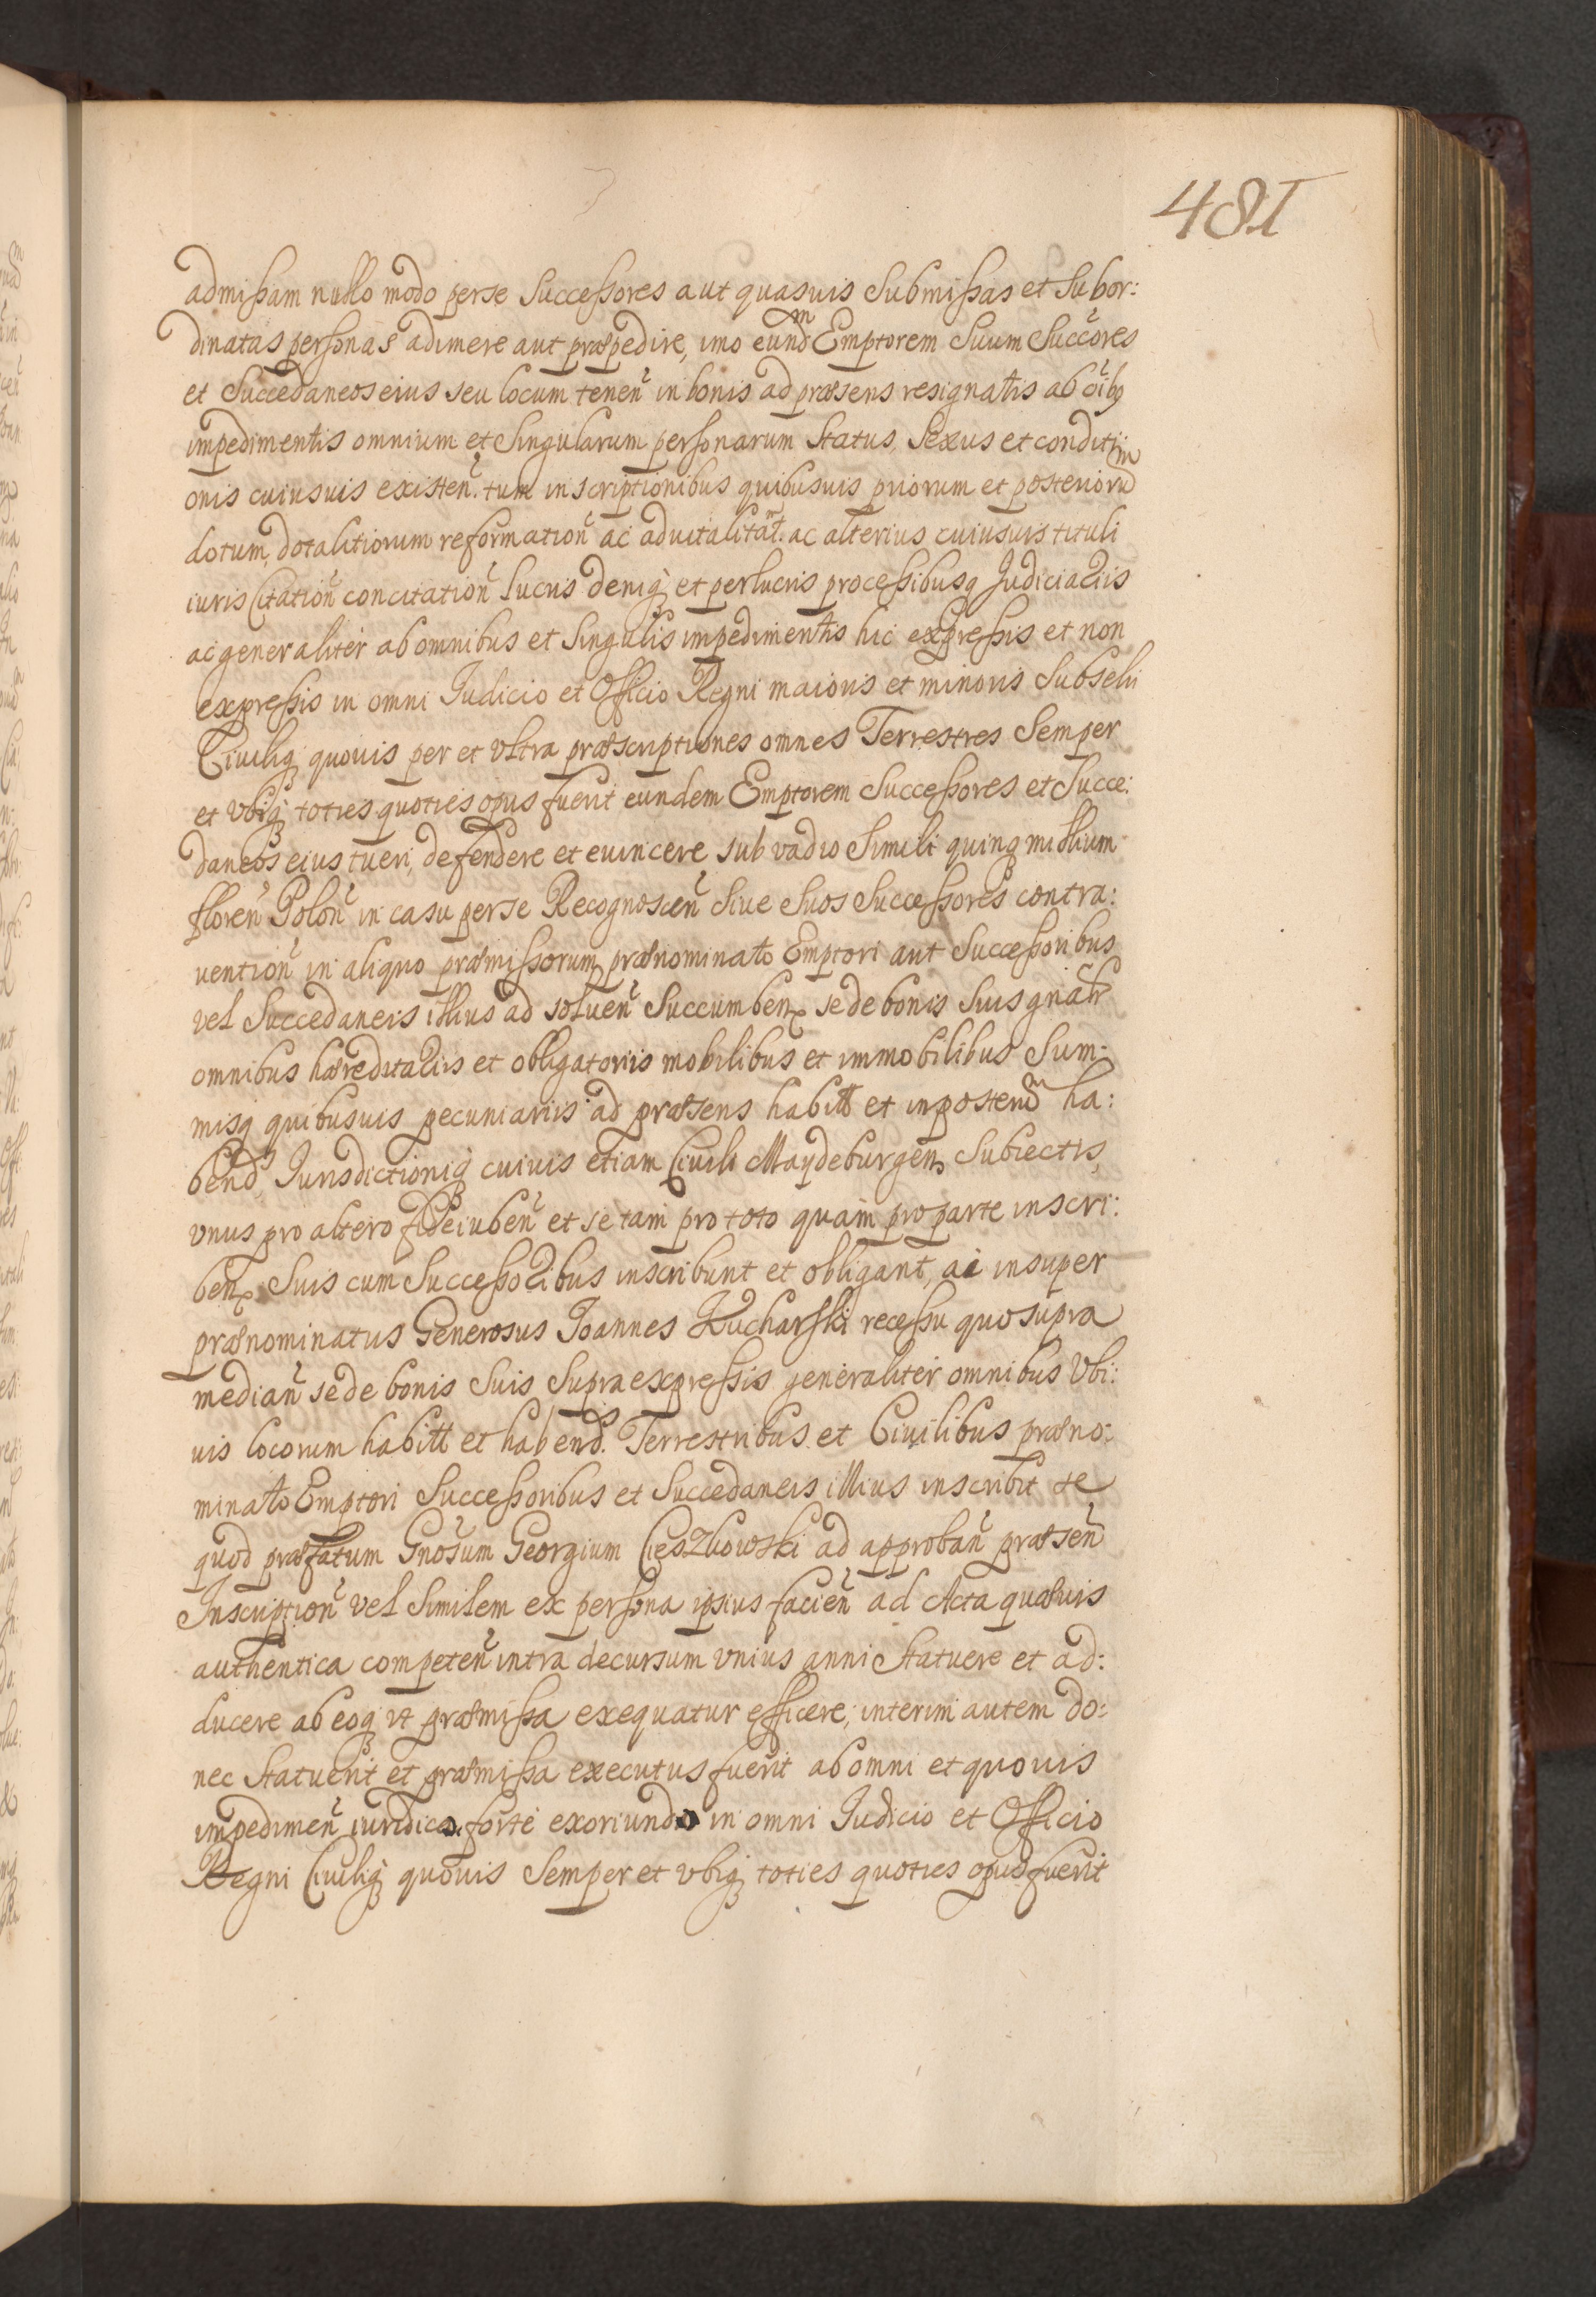 481
admissam nullo modo per se Successores aut quasuis Submissas et Subor:
dinatas personas adimere aut præpedire, imo eundm Emptorem Suum Succores
et Succedaneos eius seu locum tenen in bonis ad præsens resignatis ab oibq
impedimentis omnium et Singularum personarum Status, Sexus et conditi:
onis cuiusuis existen. tum inscriptionibus quibusuis priorum et posteriorum
dotum, dotalitiorum reformation ac aduitalitat. ac alterius cuiusuis tituli
iuris Citation concitation lucris deniq et perlucris processibusq Judicialiis
ac generaliter ab omnibus et Singulis impedimentis hic expressis et non
expressis in omni Judicio et Officio Regni maioris et minoris Subselii
Ciuiliq quouis per et vltra præscriptiones omnes Terrestres Semper
et vbiq toties quoties opus fuerit eundem Emptorem Successores et Succe:
daneos eius tueri, defendere et euincere sub vadio Simili quinq millium
floren Polon in casu per se Recognoscen Siue Suos Successores contra:
uention in aliquo præmissorum prænominato Emptori aut Successoribus
vel Succedaneis illius ad soluen Succumben se de bonis Suis gnalr
omnibus hæreditaliis et obligatoriis mobilibus et immobilibus Sum:
misq quibusuis pecuniariis ad præsens habitt et inposterum ha:
bend, Jurisdictioniq cuiuis etiam Ciuili Maydeburgen Subiectis,
vnus pro altero fideiuben et se tam pro toto quam pro parte inscri:
ben Suis cum Successoribus inscribunt et obligant, ac insuper
prænominatus Generosus Joannes Kucharski recessu quo supra
median se de bonis Suis Supra expressis generaliter omnibus Vbi:
uis locorum habitt et habend. Terrestribus et Ciuilibus præno:
minato Emptori Successoribus et Succedaneis illius inscribit te
quod præfatum Gnosum Georgium Cieszkowski ad approban præsen
Inscription vel Similem ex persona ipsius facien ad Acta quæuis
authentica competen intra decursum vnius anni Statuere et ad:
ducere ab eoq vt præmissa exequatur efficere; interim autem do:
nec Statuerit et præmissa executus fuerit ab omni et quouis
impedimen iuridico forte exoriundo in omni Judicio et Officio
Regni Ciuiliq quouis Semper et vbiq toties quoties opus fuerit